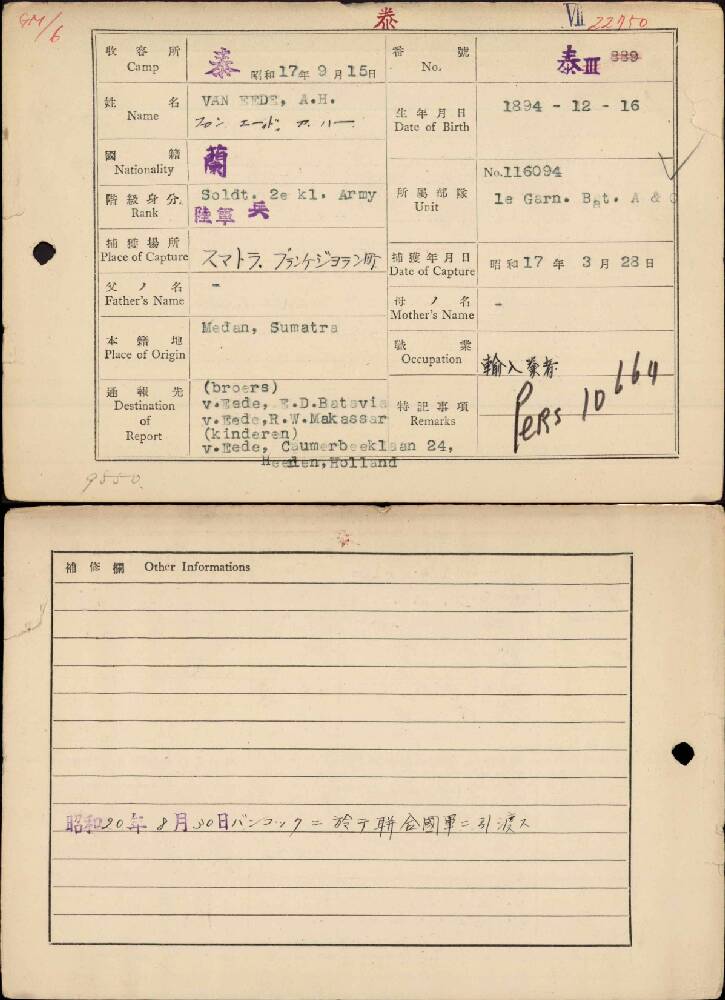 GM/6
泰
VII 22750
收容所 Camp 泰 昭和17年9月15日
番號 No. 泰III 889
姓名 Name VAN EEDE, A.H.
フロン エード, アハー
生年月日 Date of Birth 1894 - 12 - 16
國籍 Nationality 蘭
階級身分 Rank Soldt. 2e kl. Army
陸軍 兵
所屬部隊 Unit No.116094
1e Garn. Bat. A & O
捕獲場所 Place of Capture スマトラ、ブランケジヨラン町
捕獲年月日 Date of Capture 昭和17年 3月28日
父ノ名 Father's Name -
母ノ名 Mother's Name -
本籍地 Place of Origin Medan, Sumatra
職業 Occupation 輸入業者
通報先 Destination of Report (broers)
v.Eede, E.D.Batavia
v.Eede,R.W.Makassar
(kinderen)
v.Eede, Caumerbeeklaan 24,
Heeden,Holland
特記事項 Remarks PERS 10664
9550.
補修欄 Other Informations
昭和20年8月30日バンコックニ於テ聯合國軍ニ引渡ス